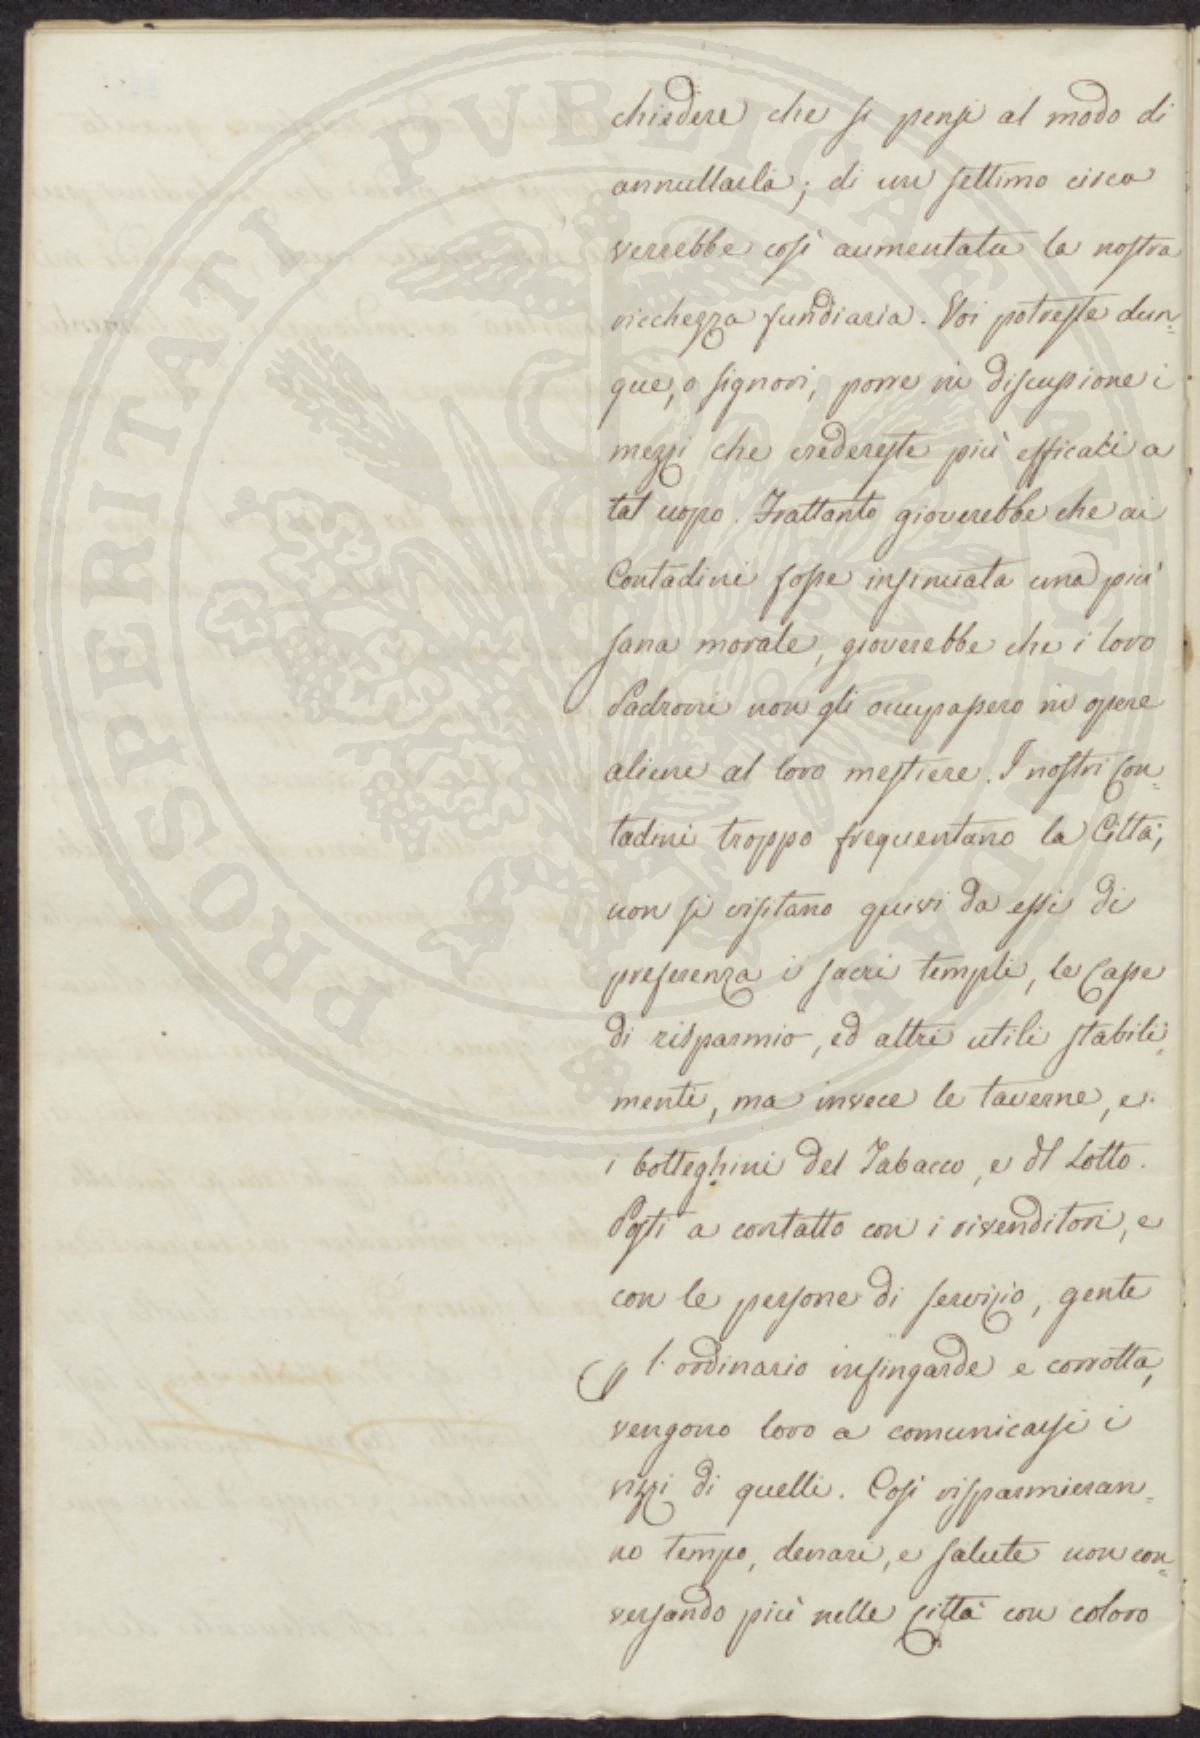 chiedere che si pensi al modo di
annullarla; di un settimo circa
verrebbe così aumentata la nostra
ricchezza fundiaria. Voi potreste dun=
que, o signori, porre in discussione i
mezzi che credereste più efficaci a
tal uopo. Frattanto gioverebbe che ai
Contadini fosse insinuata una più
sana morale, gioverebbe che i loro
Padroni non gli occupassero in opere
aliene al loro mestiere. I nostri Con=
tadini troppo frequentano la Città;
non si visitano quivi da essi di
preferenza i sacri templi, le Casse
di risparmio, ed altri utili stabili=
menti, ma invece le taverne, e
i botteghini del Tabacco, e del Lotto.
Posti a contatto con i rivenditori, e
con le persone di servizio, gente
p l'ordinario infingarde e corrotta,
vengono loro a comunicarsi i
vizzi di quelli. Così risparmieran=
no tempo, denari, e salute non con=
versando più nelle Città con coloro
PROSPERITATI PVBLICAE AVGENDAE